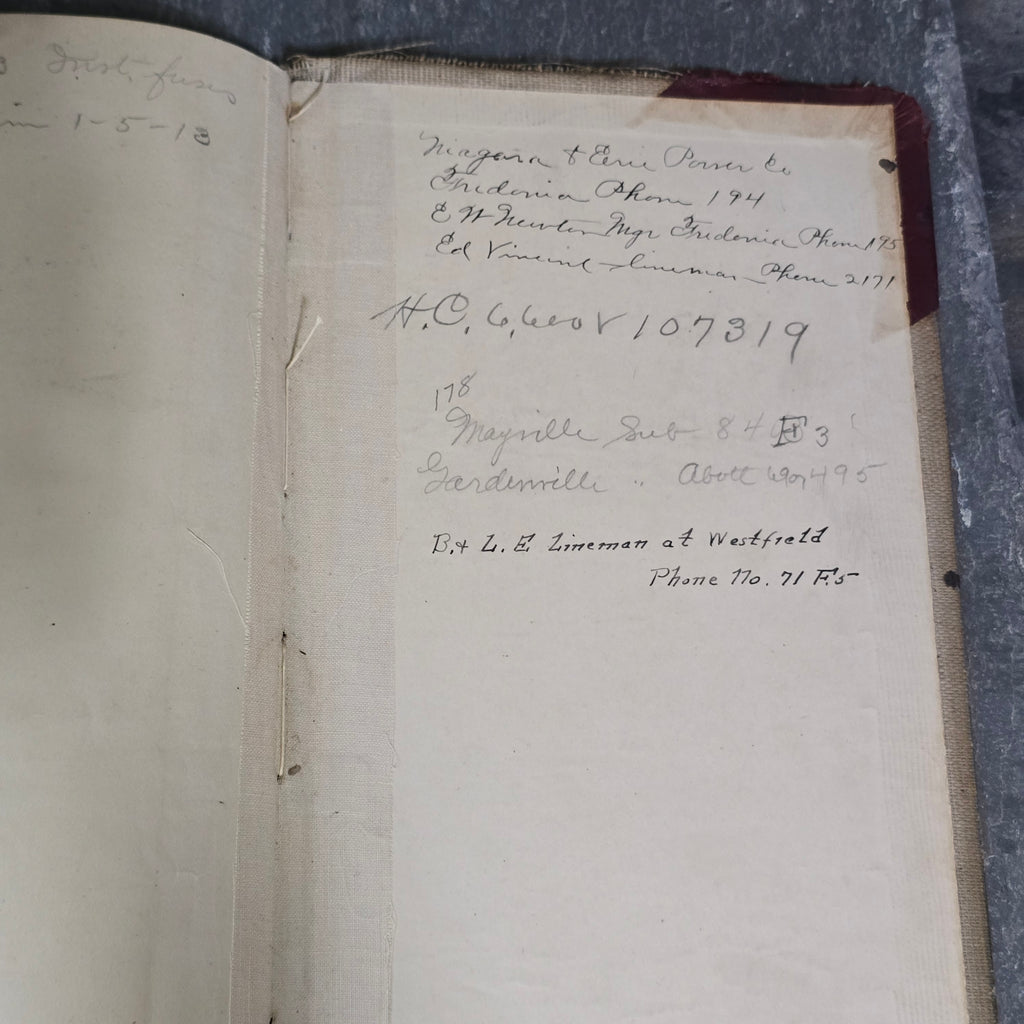 fuses
1-5-13
Niagara & Erie Power Co
Fredonia Phone 194
E W Newton Mgr Fredonia Phone 195
Ed Vincent - lineman - Phone 2171
H.C. 6,600 V 107319
178
Mayville Sub 84 F 3
Gardenville " Abott 495
B. & L. E. Lineman at Westfield
Phone No. 71 F.5